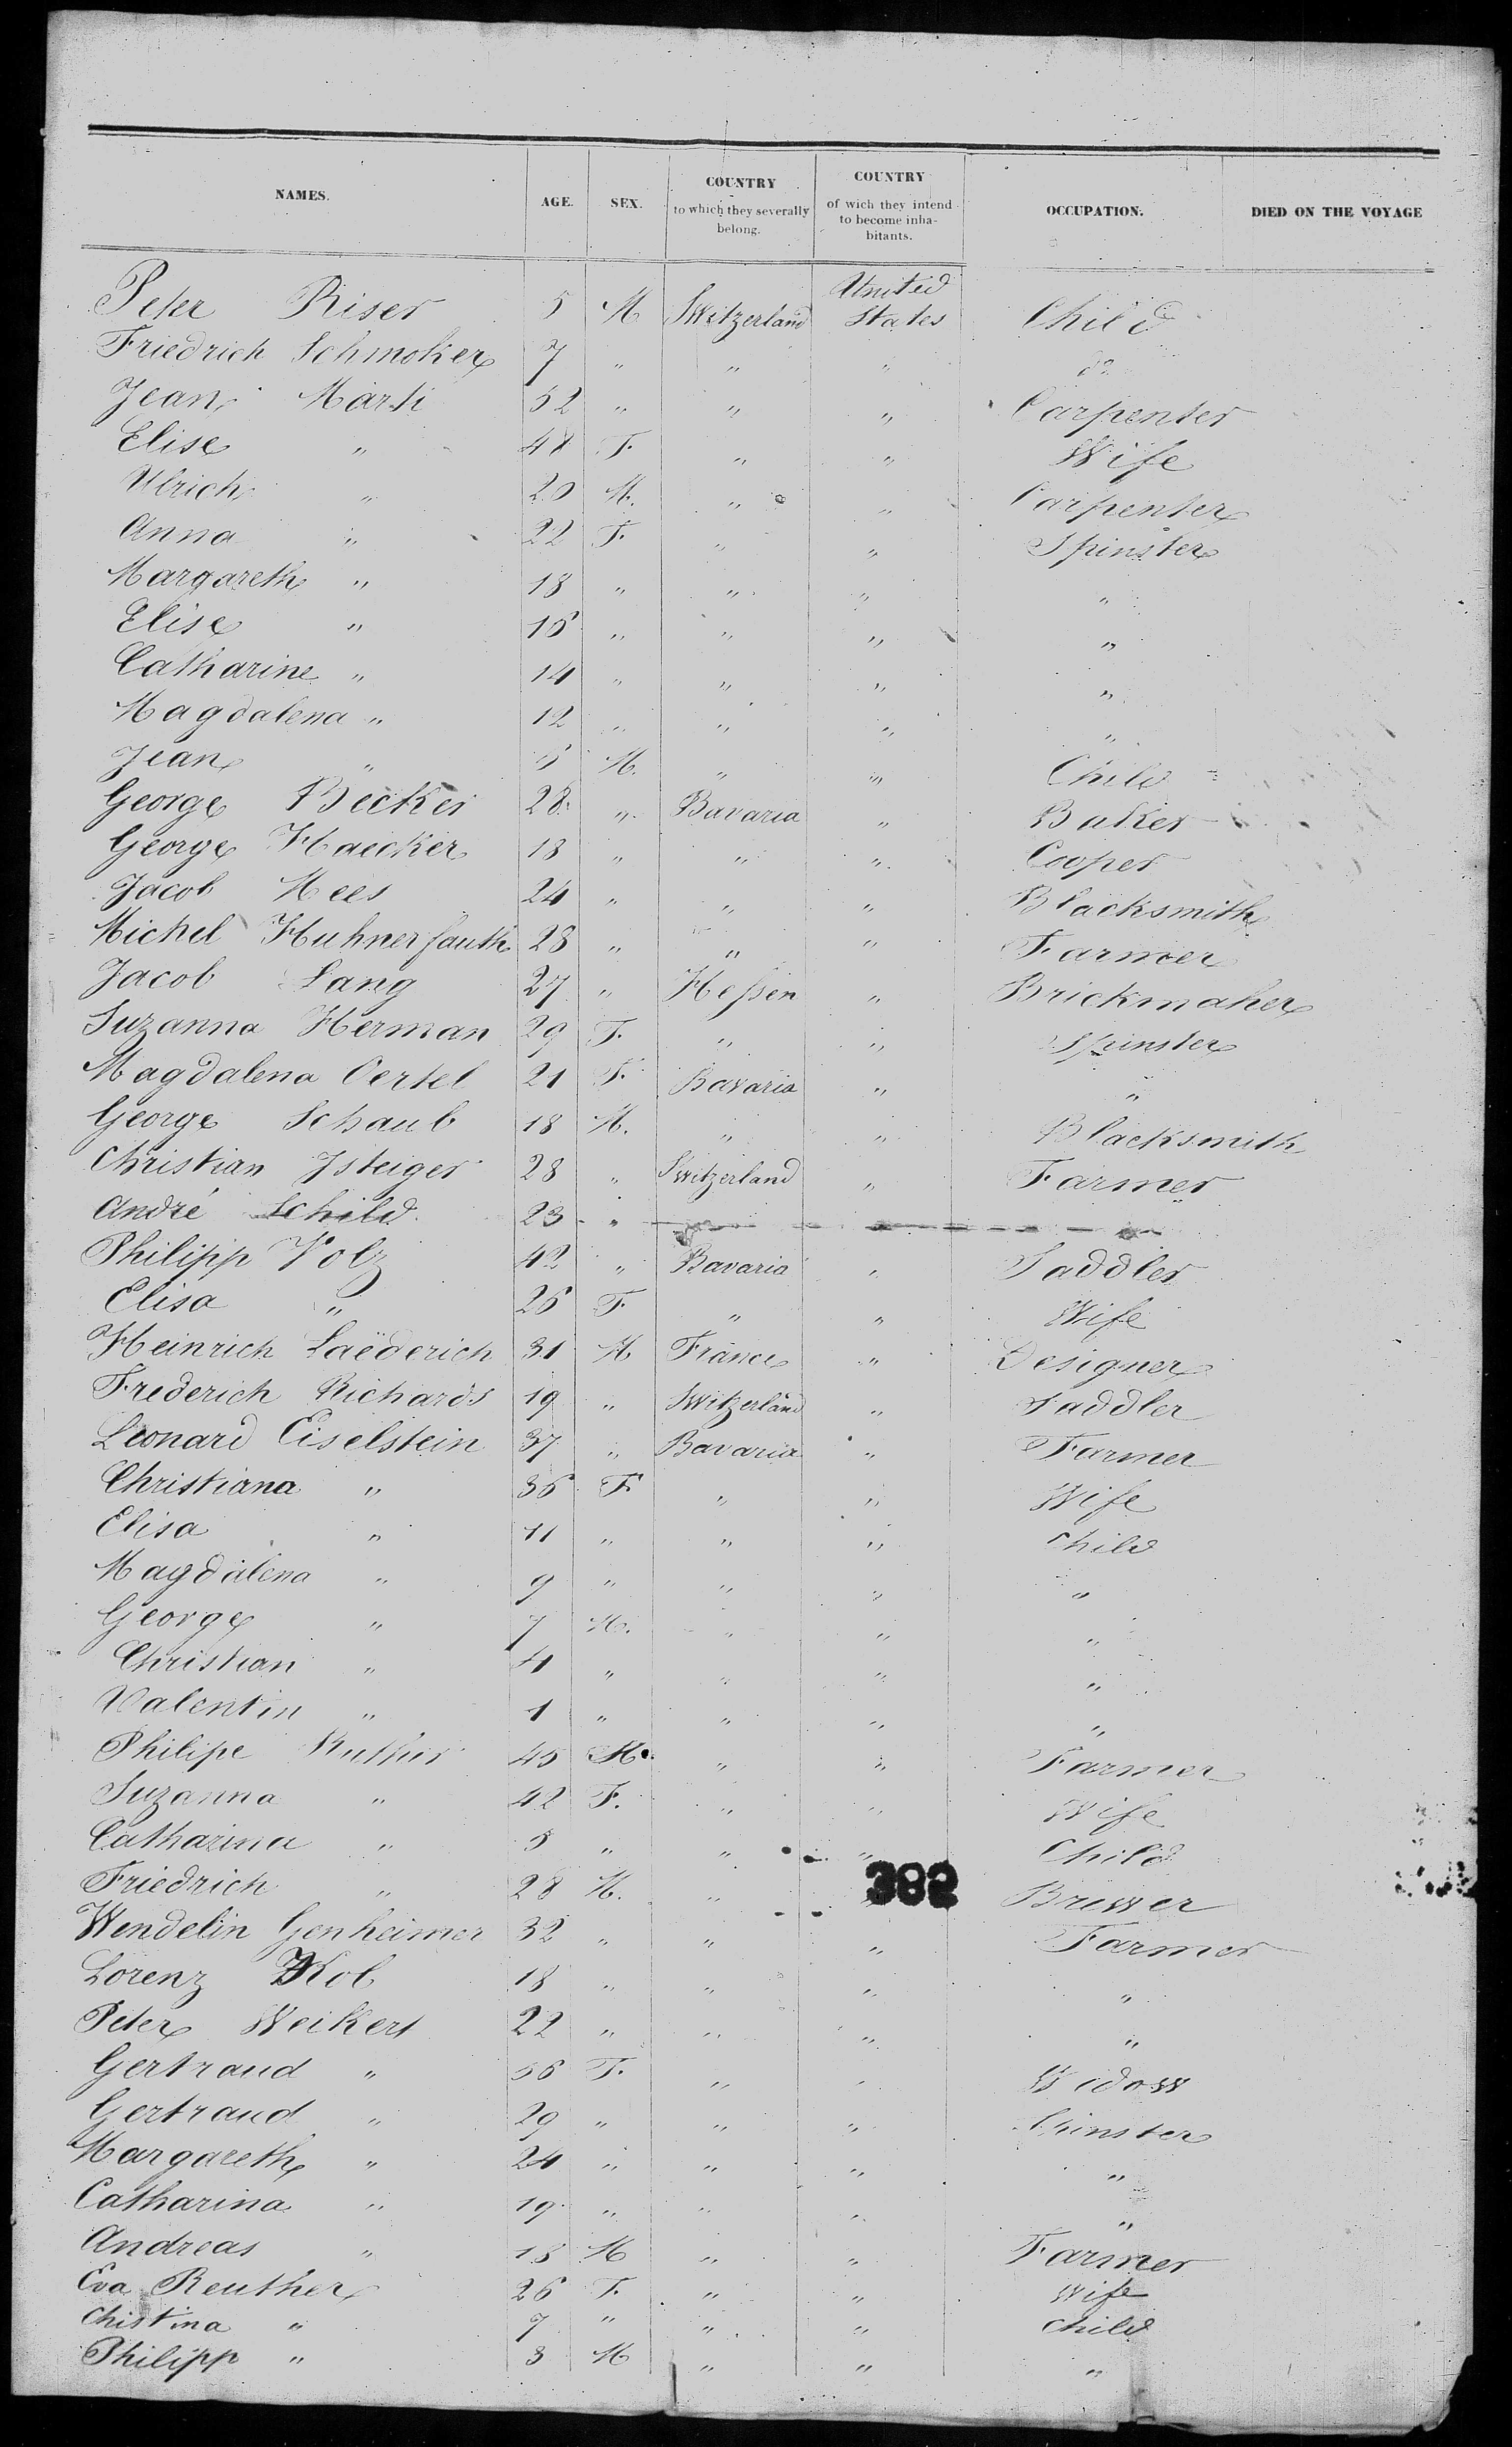 NAMES. AGE. SEX. COUNTRY to which they severally belong. COUNTRY of wich they intend to become inhabitants. OCCUPATION. DIED ON THE VOYAGE
Peter Riser 5 M Switzerland United States Child
Friedrich Schmoker 7 " " " do
Jean Marti 52 " " " Carpenter
Elise " 48 F. " " Wife
Ulrich " 20 M. " " Carpenter
Anna " 22 F. " " Spinster
Margareth " 18 " " " "
Elise " 16 " " " "
Catharine " 14 " " " "
Magdalena " 12 " " " "
Jean " 5 M. " " Child
George Becker 28 " Bavaria " Baker
George Haecker 18 " " " Cooper
Jacob Mees 24 " " " Blacksmith
Michel Huhnerfauth 28 " " " Farmer
Jacob Lang 27 " Hessen " Brickmaker
Suzanna Herman 29 F. " " Spinster
Magdalena Oertel 21 F. Bavaria " "
George Schaub 18 M. " " Blacksmith
Christian Jsteiger 28 " Switzerland " Farmer
André Schild 23 "
Philipp Volz 42 " Bavaria " Saddler
Elisa " 26 F. " " Wife
Heinrich Laëderich 31 M France " Designer
Frederich Richards 19 " Switzerland " Saddler
Leonard Eiselstein 37 " Bavaria " Farmer
Christiana " 36 F. " " Wife
Elisa " 11 " " " Child
Magdalena " 9 " " " "
George " 7 M. " " "
Christian " 4 " " " "
Valentin " 1 " " " "
Philipe Ruther 45 M. " " Farmer
Suzanna " 42 F. " " Wife
Catharina " 5 " " " Child
Friedrich " 28 M. " Brewer
382
Wendelin Genheimer 32 " " " Farmer
Lorenz Kob 18 " " " "
Peter Weikert 22 " " " "
Gertraud " 56 F. " " Widow
Gertraud " 29 " " " Spinster
Margareth " 24 " " " "
Catharina " 19 " " " "
Andreas " 18 M " " Farmer
Eva Reuther 26 F. " " Wife
Christina " 7 " " " child
Philipp " 3 M " " "